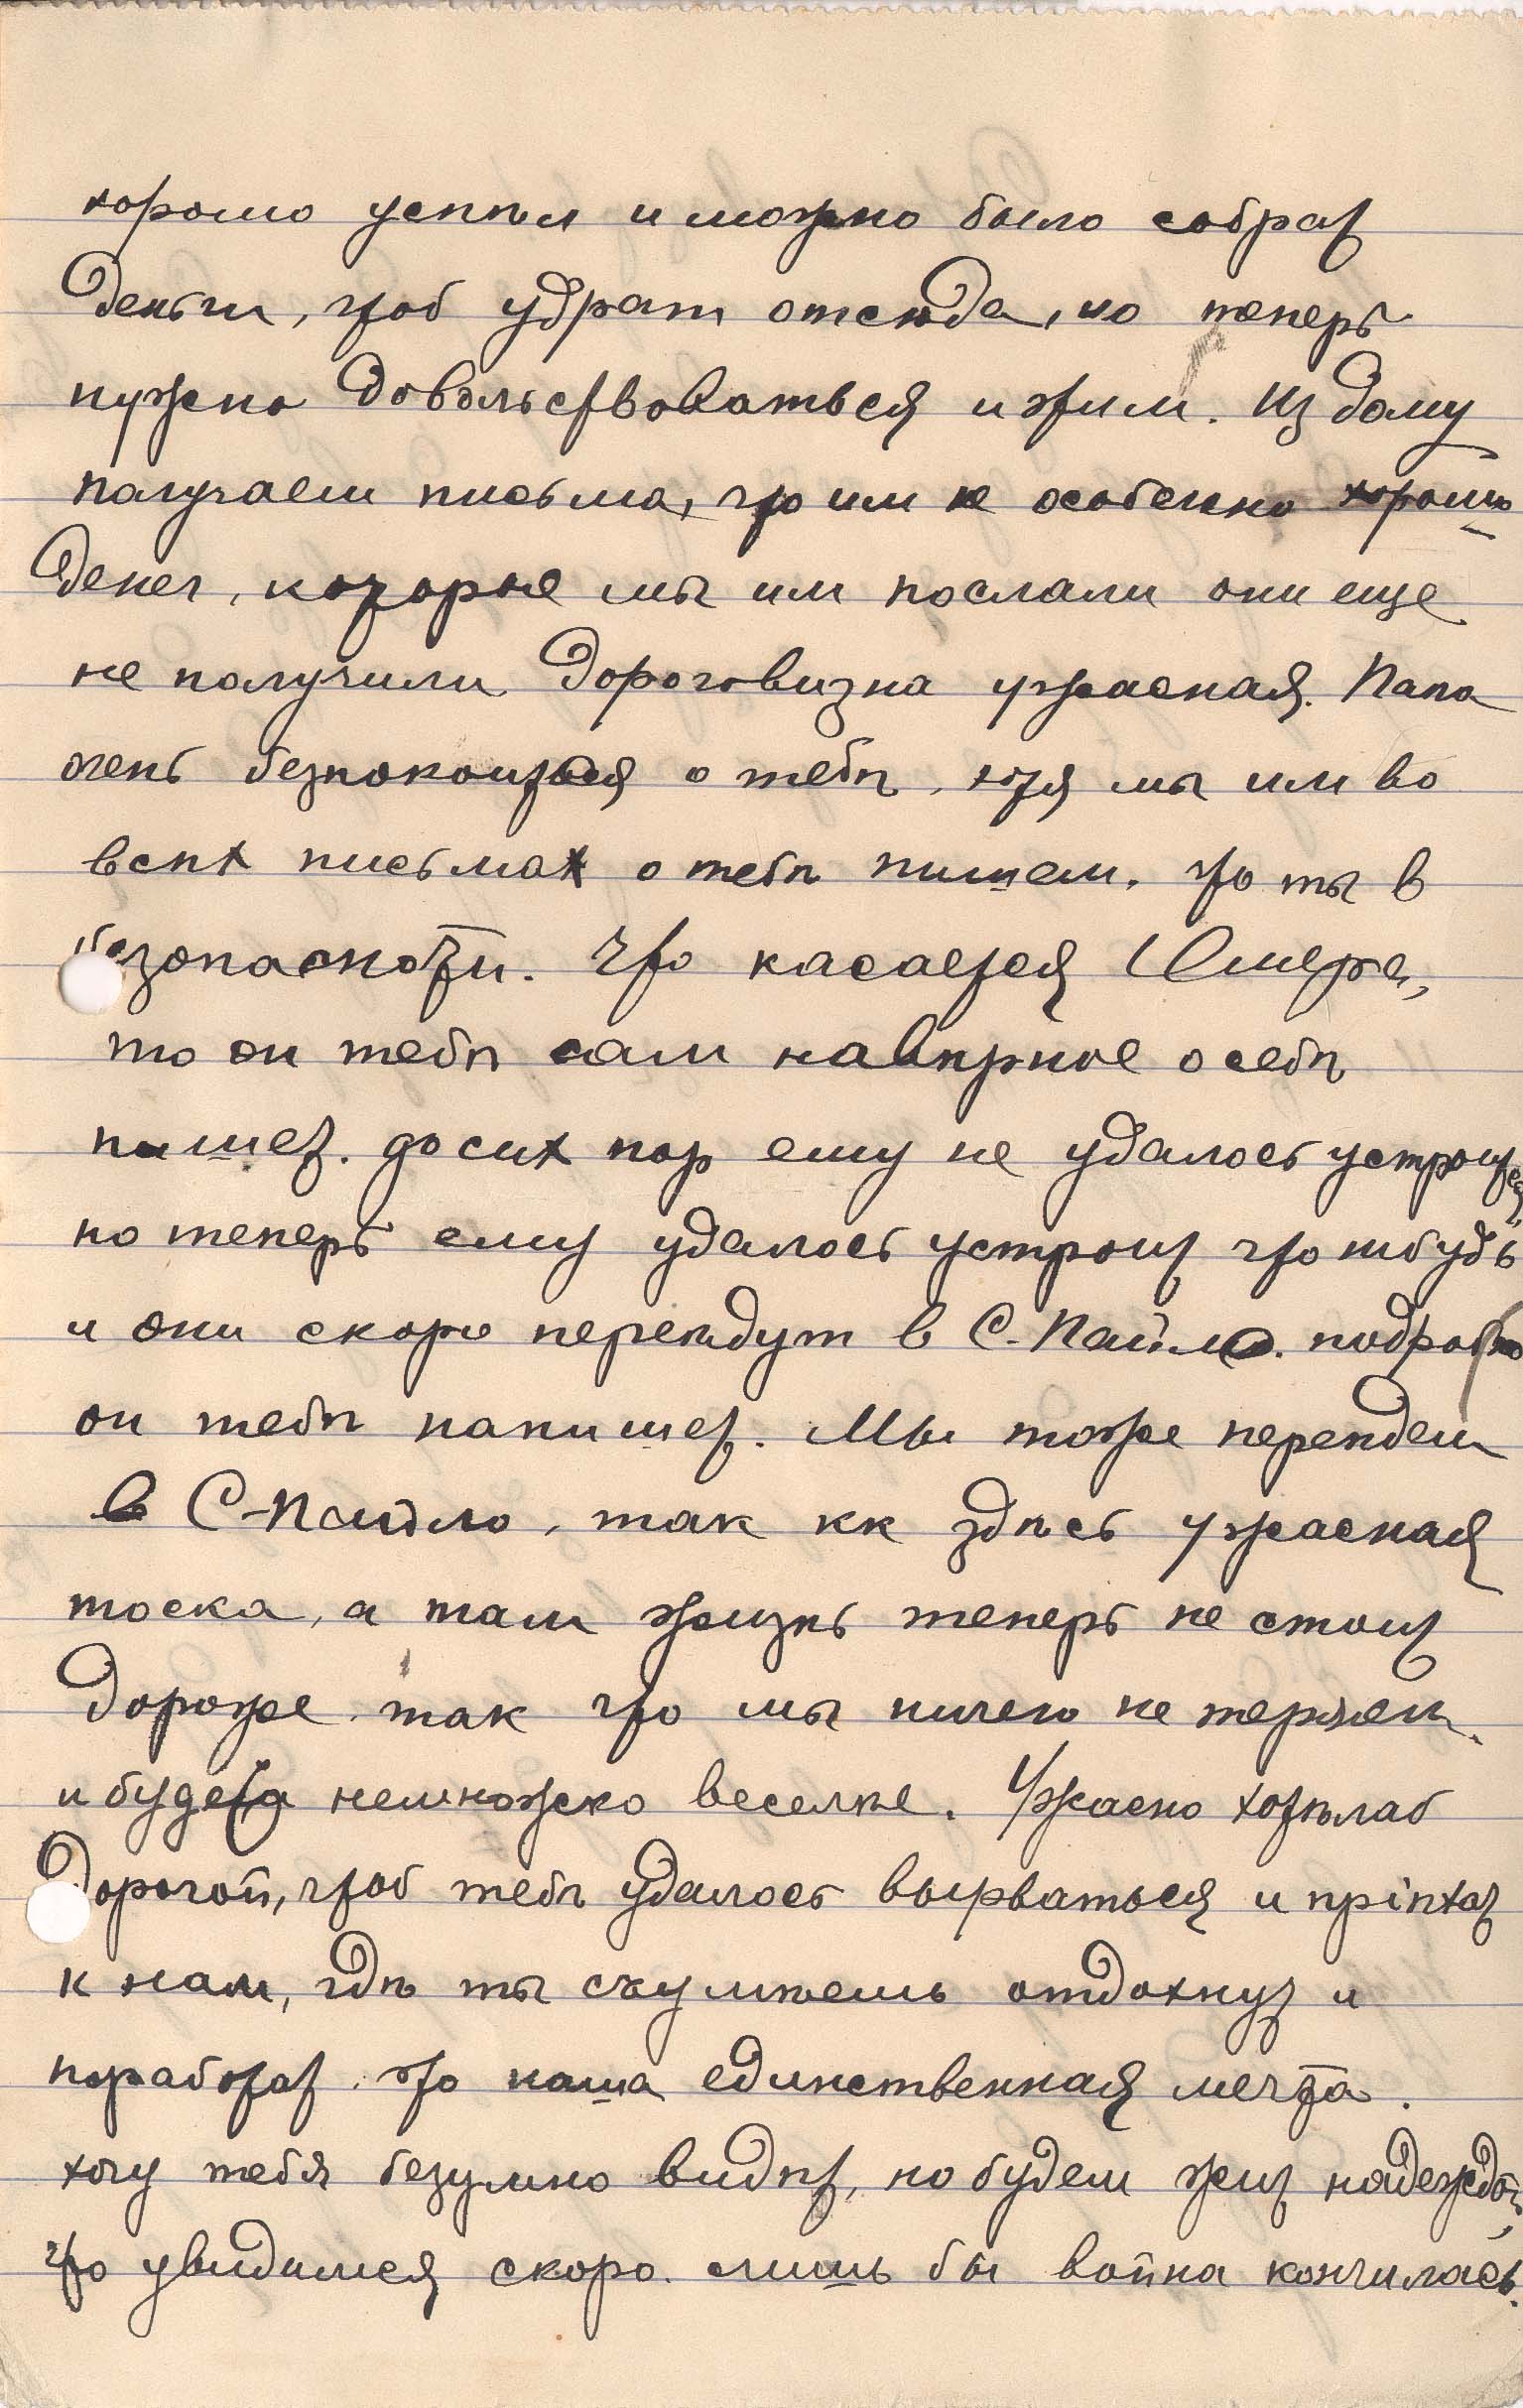 хорошо успѣл и можно было собрат
деньги, чтоб удрат отсюда, но теперь
нужно довольствоваться и этим. Из дому
получаем письма, что им не особенно хорошо
Денег, которые мы им послали они еще
не получили. Дороговизна ужасная. Папа
очень безпокоиться о тебѣ, хотя мы им во
всѣх письмах о тебѣ пишем, что ты в
безопасности. Что касается Юмера,
то он тебѣ сам навѣрное о себѣ
пишет. до сих пор ему не удалось устроится,
но теперь ему удалось устроит что нибудь
и они скоро переѣдут в С.-Пауло. подробно
он тебѣ напишет. Мы тоже переѣдем
в С-Пауло, так кк здѣсь ужасная
тоска, а там жизнь теперь не стоит
дороже так что мы ничего не теряем.
и будет немножко веселѣе. Ужасно хотѣлаб
Дорогой, чтоб тебѣ удалось вырваться и пріѣхат
к нам, гдѣ ты съумѣешь отдохнут и
поработат. это наша единственная мечта.
хочу тебя безумно видѣт, но будем жит надеждой,
что увидимся скоро. лишь бы война кончилась.